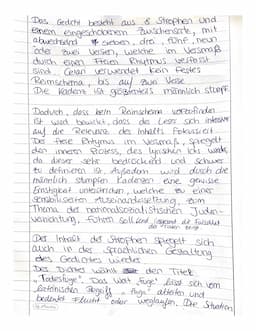 Das Gedicht besteht aus 8 Strophen und
einem eingeschobenem Zwischenteile, mit
abwechselnd sieben, drei, fünf, neun
oder zwei Versen, welche im Versmaß
durch einen Freien Rhytmus verfasst
sind. Celan verwendet kein festes
Reimschema, bis auf zwei Verse
Die Kadenz ist größtenteils männlich stumpf.
Dadurch, dass kein Reimschema vorzufinden
ist wird bewirkt, dass die Leser sich intensiv
auf die Relevanz des Inhalts fokussiert
Der freie Rhytmus im Versmaß, spiegelt
den inneren Prozess, des lyrischen Ichs wieder,
da dieser sehr bedrückend und schwer
zu definieren ist. Außerdem wird durch die
männlich stumpfen Kadenzen eine gewisse
Ernsthaftigkeit unterstrichen, welche zu einer
sensibilisierten Auseinandersetzung, zum
Thema der nationalsozialistischen Juden-
vernichtung, führen soll.
Der Inhalt der Strophen spiegelt sich
auch in der sprachlichen Gestaltung
des Gedichtes wieder.
Der Dichter wählt den Titel
"Todesfuge". Das Wort "Fuge" lässt sich vom
lateinischen Begriff "fuga" ableiten und
bedeutet Flucht oder weglaufen. Die Situation